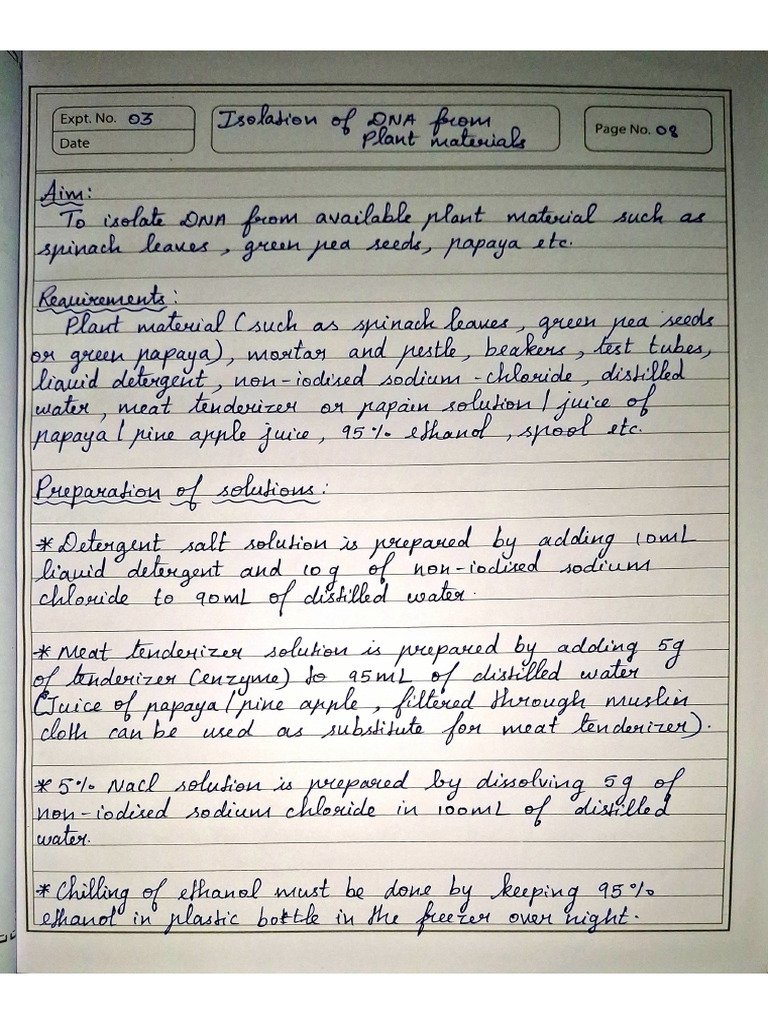 Expt. No. 03
Date
Isolation of DNA from
Plant materials
Page No. 08
Aim:
To isolate DNA from available plant material such as
spinach leaves, green pea seeds, papaya etc.
Requirements:
Plant material (such as spinach leaves, green pea seeds
or green papaya), mortar and pestle, beakers, test tubes,
liquid detergent, non-iodised sodium-chloride, distilled
water, meat tenderizer or papain solution / juice of
papaya / pine apple juice, 95% ethanol, spool etc.
Preparation of solutions:
* Detergent salt solution is prepared by adding 10mL
liquid detergent and 10g of non-iodised sodium
chloride to 90mL of distilled water.
* Meat tenderizer solution is prepared by adding 5g
of tenderizer (enzyme) to 95mL of distilled water
(Juice of papaya / pine apple, filtered through muslin
cloth can be used as substitute for meat tenderizer).
* 5% Nacl solution is prepared by dissolving 5g of
non-iodised sodium chloride in 100mL of distilled
water.
* Chilling of ethanol must be done by keeping 95%
ethanol in plastic bottle in the freezer over night.